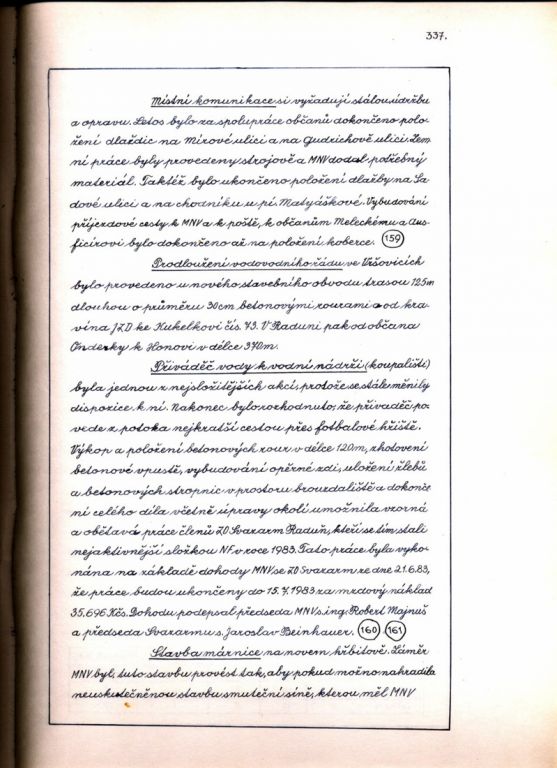 337.
Místní komunikace si vyžadují stálou údržbu
a opravu. Letos bylo za spolupráce občanů dokončeno polo-
žení dlaždic na Mírové ulici a na Gudrichově ulici. Zem
ní práce byly provedeny strojově a MNV dodal potřebný
materiál. Taktéž bylo ukončeno položení dlažby na Sa-
dové ulici a na chodníku u pí. Matyáškové. Vybudování
příjezdové cesty k MNV a k poště, k občanům Meleckému a Aus-
ficírovi bylo dokončeno až na položení koberce. 159
Prodloužení vodovodního řádu ve Vršovicích
bylo provedeno u nového stavebního obvodu trasou 125m
dlouhou o průměru 30cm betonovými rourami a od kra-
vína JZD ke Kukelkovi čís. 73. V Raduni pak od občana
Onderky k Honovi v délce 370m.
Přiváděč vody k vodní nádrži (koupališti)
byla jednou z nejsložitějších akcí, protože se stále měnily
dispozice k ní. Nakonec bylo rozhodnuto, že přivaděč po-
vede z potoka nejkratší cestou přes fotbalové hřiště.
Výkop a položení betonových rour v délce 120m, zhotovení
betonové vpustě, vybudování opěrné zdi, uložení žlebů
a betonových stropnic v prostoru brouzdaliště a dokonče
ní celého díla včetně úpravy okolí umožnila vzorná
a obětavá práce členů ZO Svazarm Raduň, kteří se tím stali
nejaktivnější složkou NF v roce 1983. Tato práce byla vyko-
nána na základě dohody MNV se ZO Svazarm ze dne 21.6.83,
že práce budou ukončeny do 15.7.1983 za mzdový náklad
35.696 Kčs. Dohodu podepsal předseda MNV s. ing. Robert Majnuš
a předseda Svazarmu s. Jaroslav Beinhauer. 160 161
Stavba márnice na novém hřbitově. Záměr
MNV byl, tuto stavbu provést tak, aby pokud možno nahradila
neuskutečněnou stavbu smuteční síně, kterou měl MNV